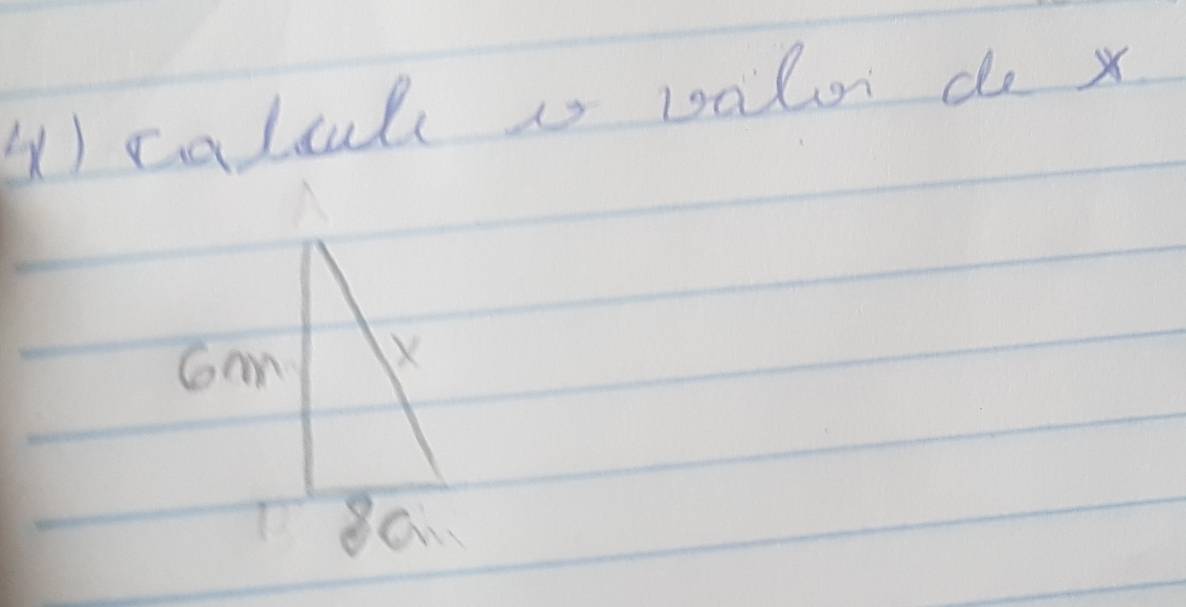 4) calcule o valor de x
A
6m
x
B
8cm